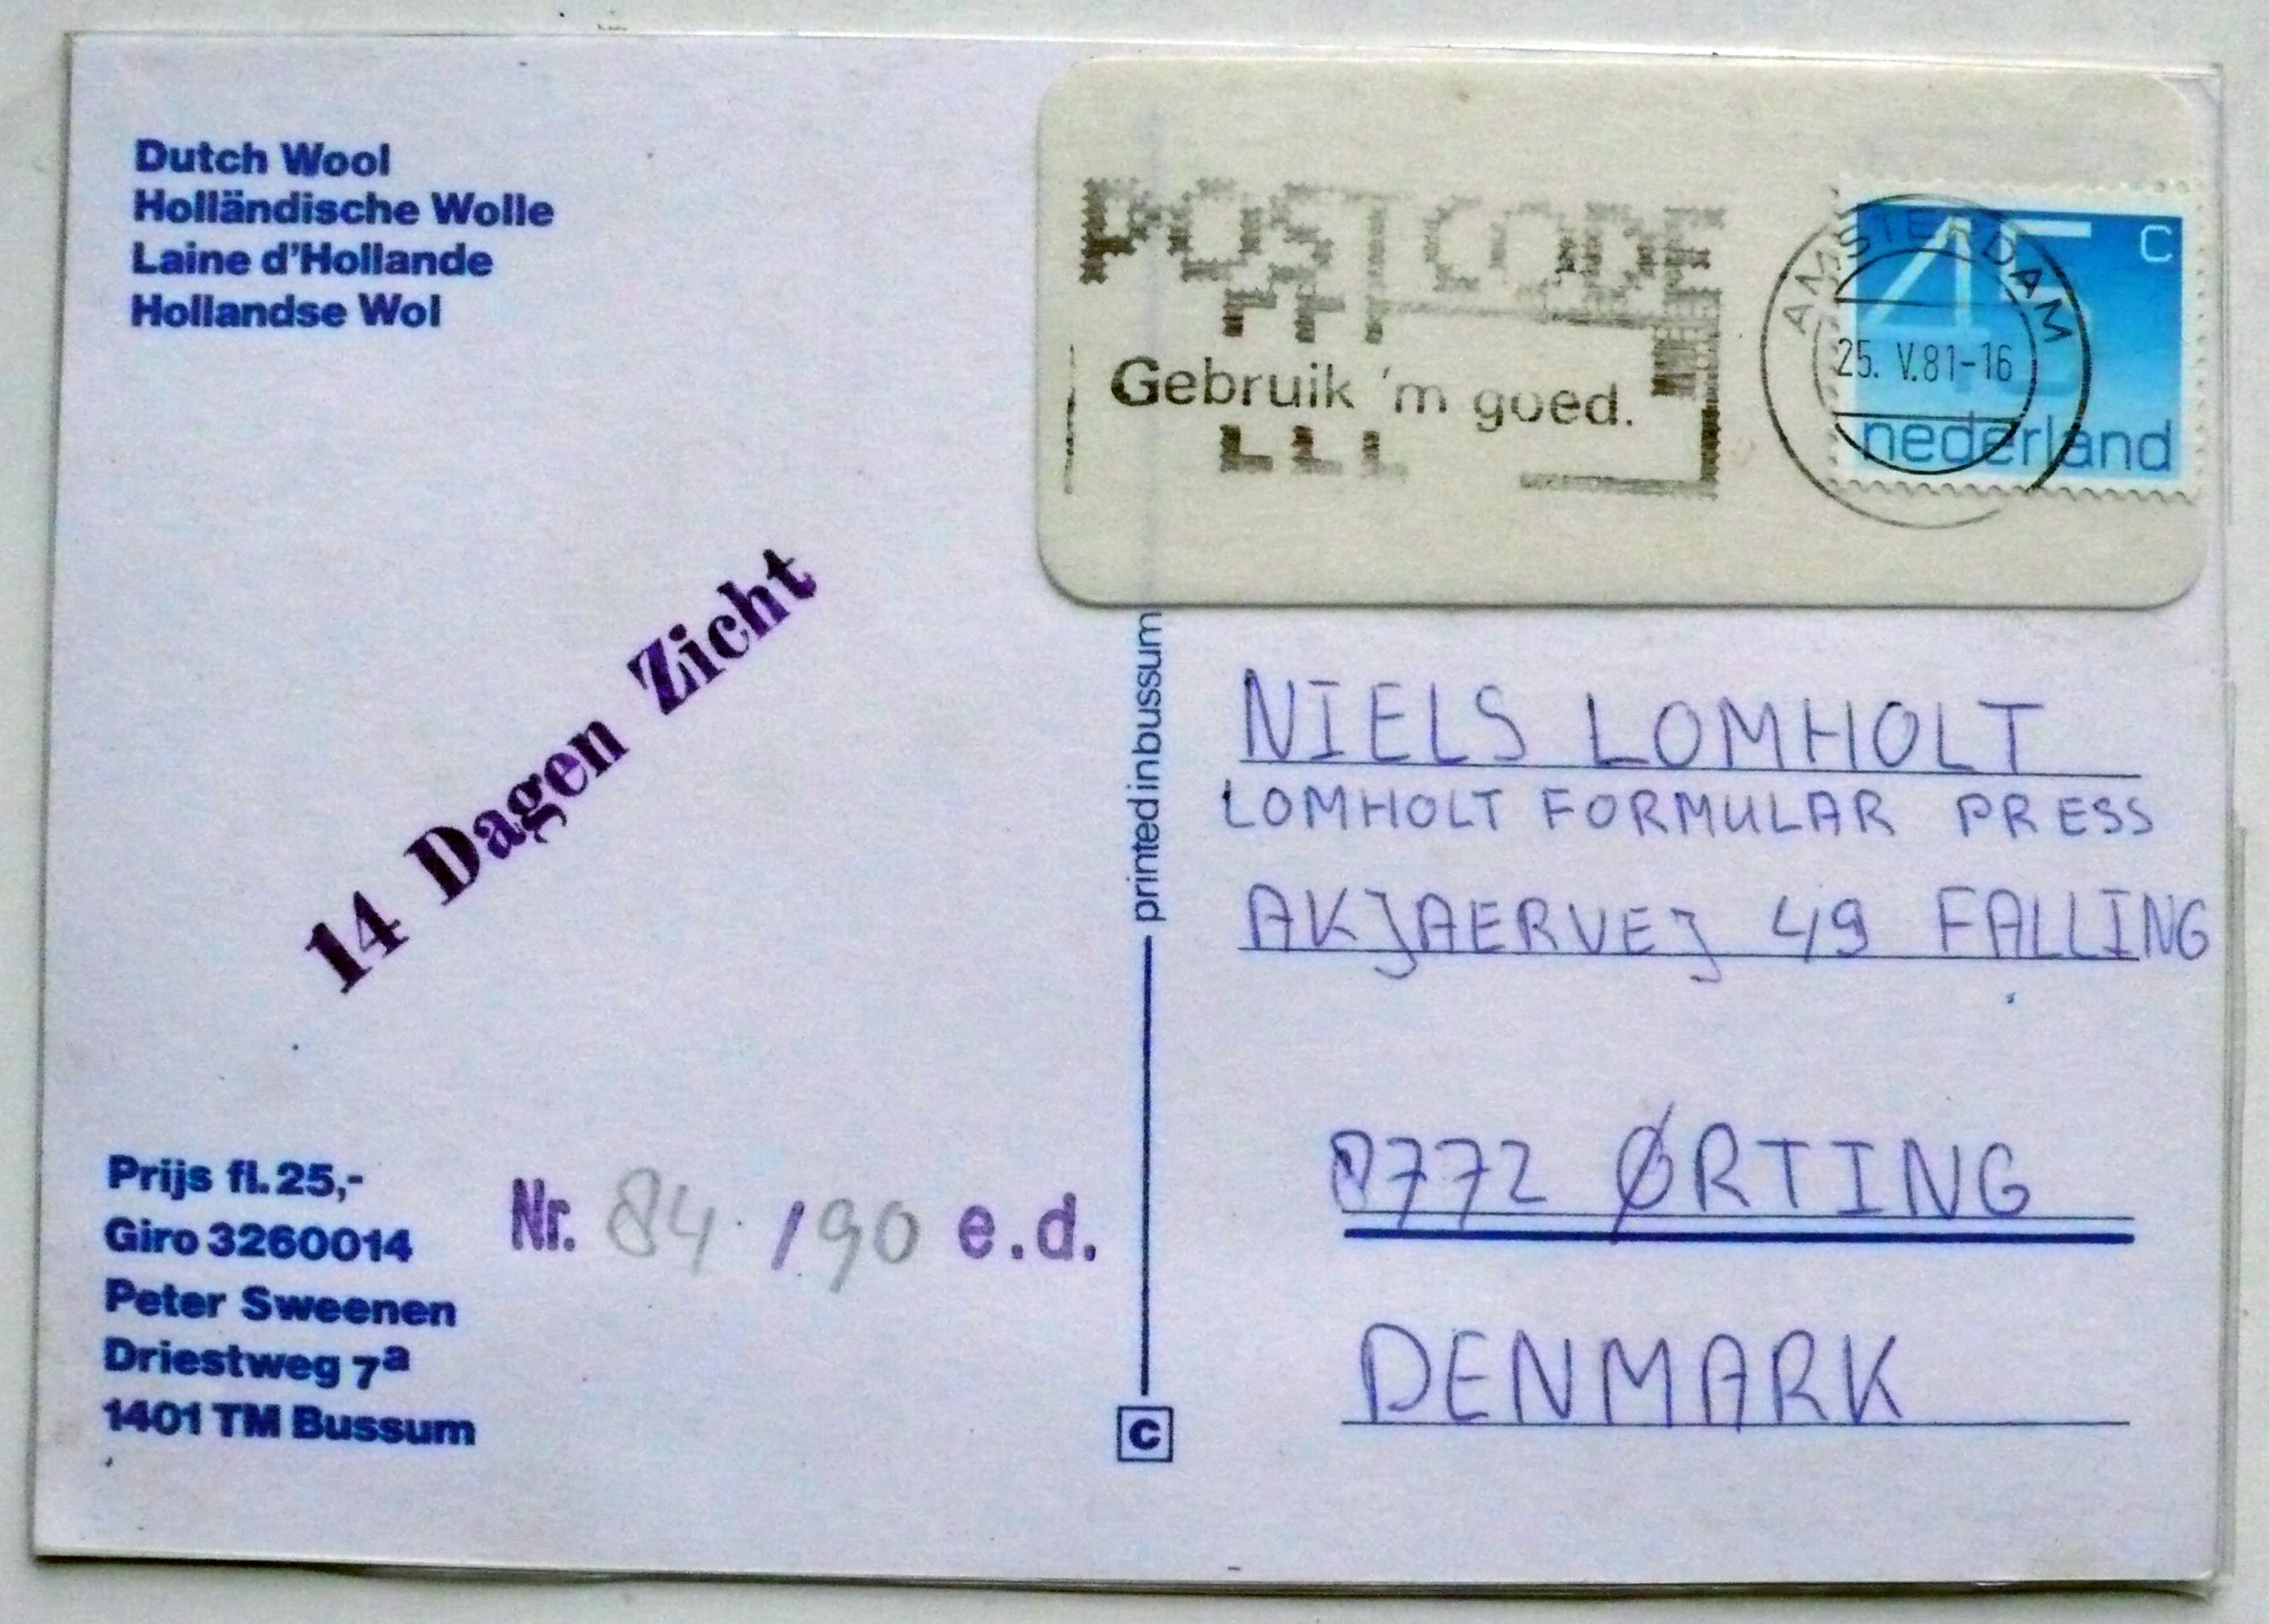 Dutch Wool
Holländische Wolle
Laine d'Hollande
Hollandse Wol
POSTCODE
Gebruik 'm goed.
AMSTERDAM
25. V.81-16
45 c
nederland
14 Dagen Zicht
printed in bussum
NIELS LOMHOLT
LOMHOLT FORMULAR PRESS
AKJAERVEJ 49 FALLING
8772 ØRTING
DENMARK
Prijs fl. 25,-
Giro 3260014
Peter Sweenen
Driestweg 7a
1401 TM Bussum
Nr. 84 / 90 e.d.
C